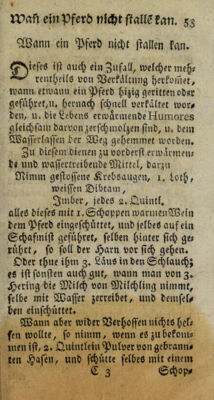 Wañ ein Pferd nicht stallẽ kan. 53
Wann ein Pferd nicht stallen kan.
Dieses ist auch ein Zufall, welcher meh-
rentheils von Verkältung herkom̃et,
wann etwann ein Pferd hizig geritten oder
geführet, u. hernach schnell verkältet wor-
den, u. die Lebens erwärmende Humores
gleichsam darvon zerschmolzen sind, u. dem
Wasserlassen der Weg gehemmet worden.
Zu diesem dienen zu vorderst erwärmen-
de und wassertreibende Mittel, darzu
Nimm gestossene Krebsaugen, 1. Loth,
weissen Dibtam,
Imber, jedes 2. Quintl.
alles dieses mit 1. Schoppen warmen Wein
dem Pferd eingeschüttet, und selbes auf ein
Schafmist geführet, selben hinter sich ge-
rührt, so soll der Harn vor sich gehen.
Oder thue ihm 3. Läus in den Schlauch;
es ist sonsten auch gut, wann man von 3.
Hering die Milch von Milchling nimmt,
selbe mit Wasser zerreibet, und demsel-
ben einschüttet.
Wann aber wider Verhoffen nichts hel-
fen wollte, so nimm, wenn es zu bekom-
men ist, 2. Quintlein Pulver von gebrann-
ten Hasen, und schütte selbes mit einem
C 3 Schop-